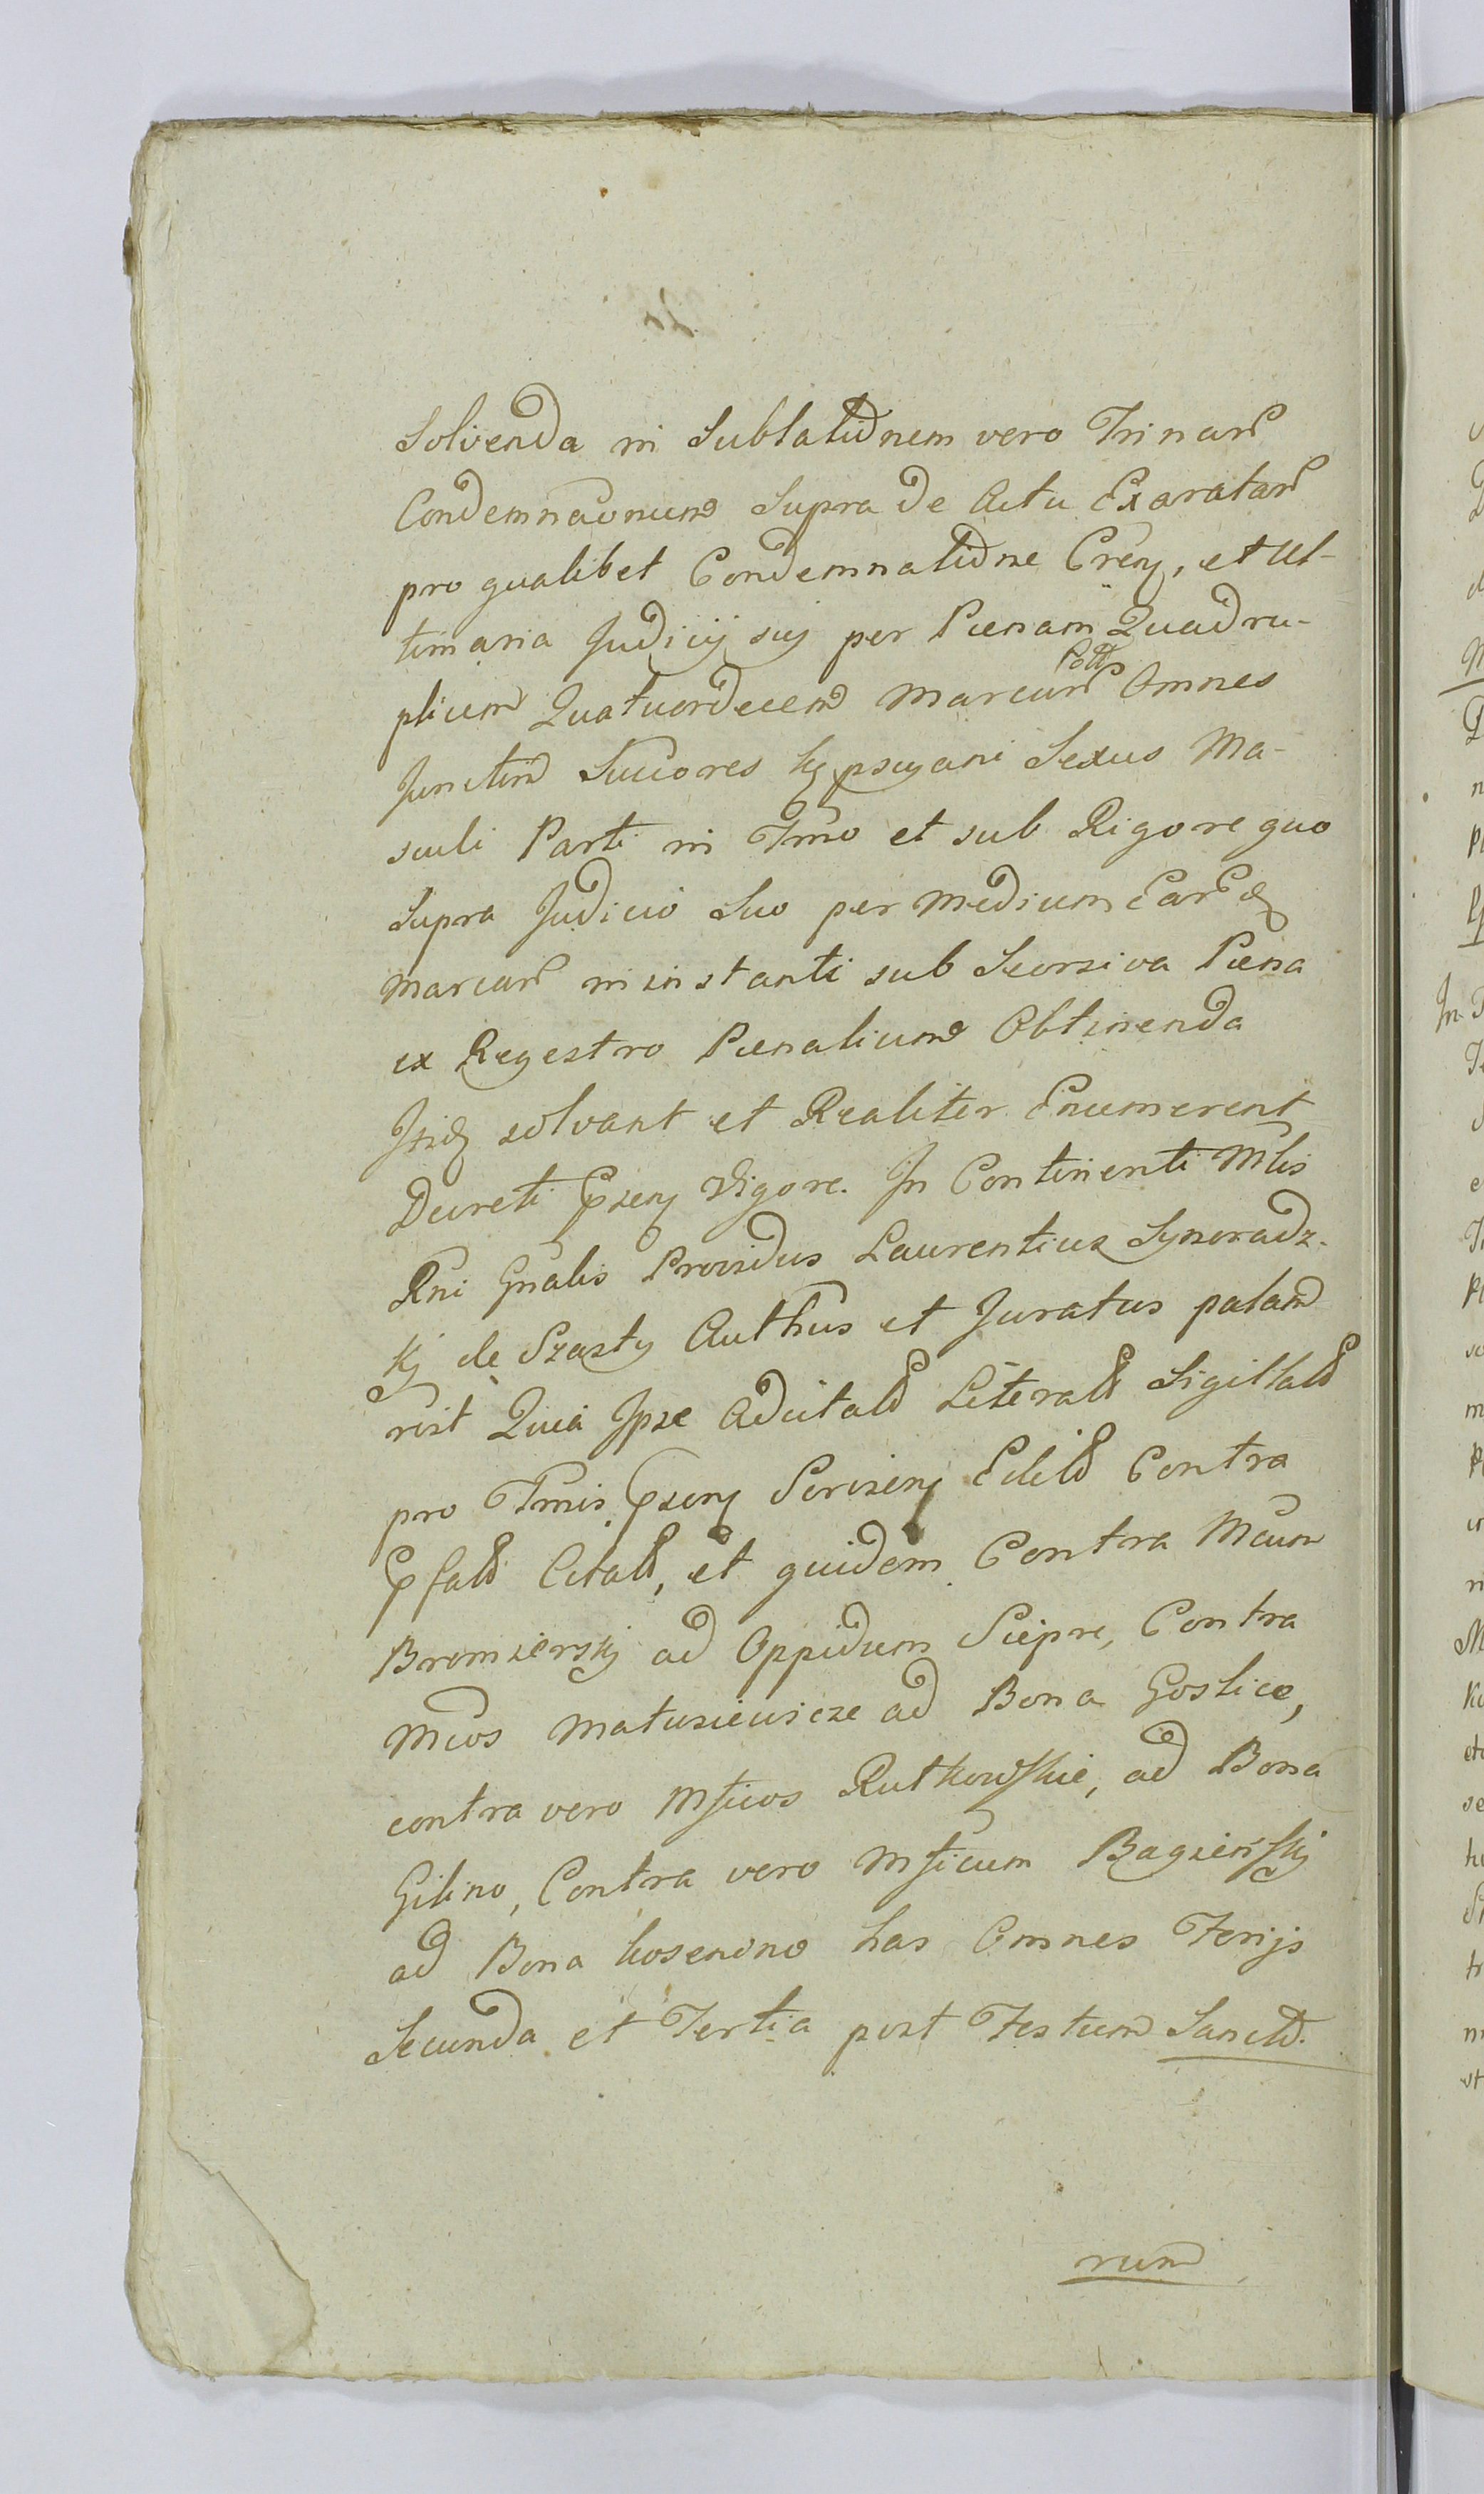 Solvenda in Sublationem vero Trinar
Condemnaonum Supra de Actu Exaratar
pro qualibet Condemnatione Cren, et Ul-
timaria Judicij sui per Pœnam Quadru-
plicem Quatuordecem Marcar Poll Omnes
Junctim Succores Sexus Ma-
sculi Parti in Tmo et sub Rigore quo
Supra Judicio Suo per medium Eard
Marcar in instanti sub Seorsiva Pœna
ex Regestro Pœnalium Obtinenda
solvant et Realiter Enumerent
Decreti Pnsen Vigore. In Continenti Mlis
Rni Gnalis Providus Laurentius Synoradz-
kj de Szasty Authus et Juratus palam
rest Quia Ipse Adcitat Literat Sigillat
pro Tmis Pnsen Edit Contra
Pfat Citat, et quidem Contra Mcum
Bromierskj ad Oppidum Sieprc, Contra
Mcos Matusiewicze ad Bona Goslice,
contra vero Mficos Rutkowskie, ad Bona
Gilino, Contra vero Mficum Bagieńskj
ad Bona Kosenino has Omnes Ferijs
Secunda et Tertia post Festum Sancto.
rum